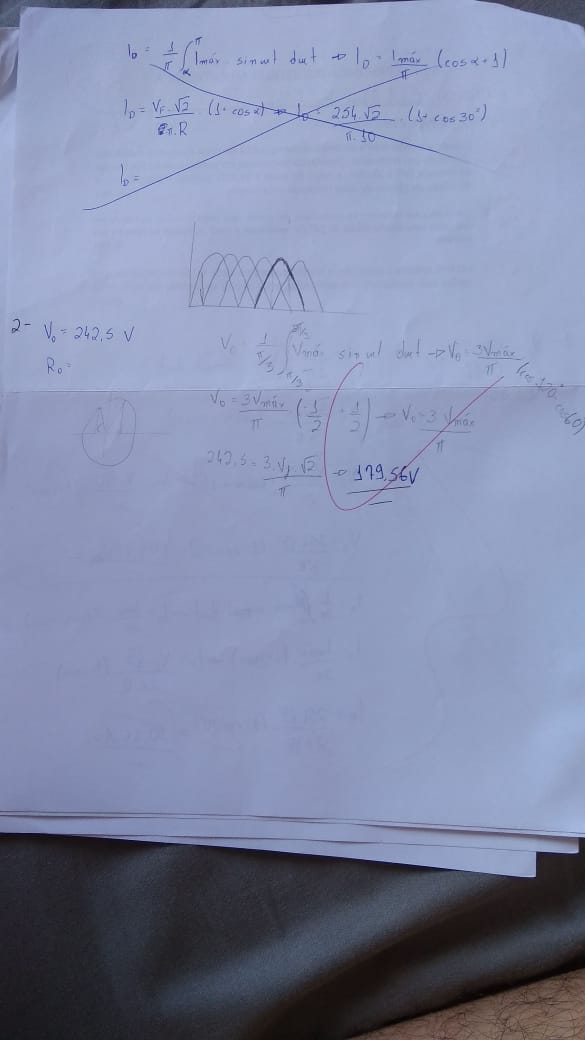 I_D = 1/π ∫_α^π Imáx. sinωt dωt → I_D = Imáx/π (cosα+1)
I_D = V_F.√2/π.R . (1+cosα) → I_D = 254.√2/π.10 . (1+cos30°)
I_D =
2- V_o = 242,5 V
V_o = 1/π/3 ∫ Vmáx sinωt dωt → V_o = 3Vmáx/π (cos120° cos60)
R_o =
V_o = 3Vmáx/π (-1/2 + 1/2) → V_o = 3 Vmáx/π
242,5 = 3.V_f.√2/π → 179,56V